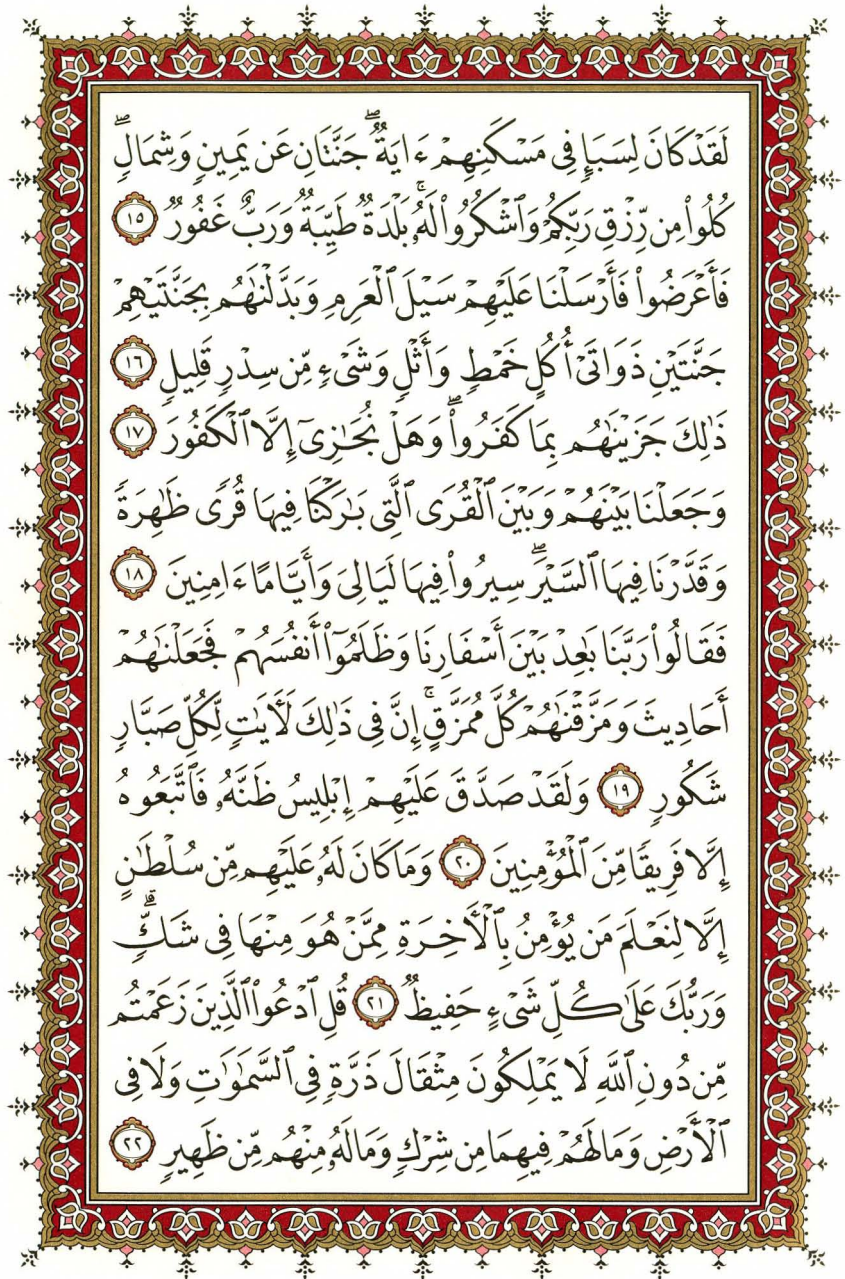 لَقَدْ كَانَ لِسَبَإٍ فِي مَسْكَنِهِمْ ءَايَةٌ ۖ جَنَّتَانِ عَن يَمِينٍ وَشِمَالٍ ۖ
كُلُوا۟ مِن رِّزْقِ رَبِّكُمْ وَٱشْكُرُوا۟ لَهُۥ ۚ بَلْدَةٌ طَيِّبَةٌ وَرَبٌّ غَفُورٌ ١٥
فَأَعْرَضُوا۟ فَأَرْسَلْنَا عَلَيْهِمْ سَيْلَ ٱلْعَرِمِ وَبَدَّلْنَٰهُم بِجَنَّتَيْهِمْ
جَنَّتَيْنِ ذَوَاتَىْ أُكُلٍ خَمْطٍ وَأَثْلٍ وَشَىْءٍ مِّن سِدْرٍ قَلِيلٍ ١٦
ذَٰلِكَ جَزَيْنَٰهُم بِمَا كَفَرُوا۟ ۖ وَهَلْ نُجَٰزِىٓ إِلَّا ٱلْكَفُورَ ١٧
وَجَعَلْنَا بَيْنَهُمْ وَبَيْنَ ٱلْقُرَى ٱلَّتِى بَٰرَكْنَا فِيهَا قُرًى ظَٰهِرَةً
وَقَدَّرْنَا فِيهَا ٱلسَّيْرَ ۖ سِيرُوا۟ فِيهَا لَيَالِىَ وَأَيَّامًا ءَامِنِينَ ١٨
فَقَالُوا۟ رَبَّنَا بَٰعِدْ بَيْنَ أَسْفَارِنَا وَظَلَمُوٓا۟ أَنفُسَهُمْ فَجَعَلْنَٰهُمْ
أَحَادِيثَ وَمَزَّقْنَٰهُمْ كُلَّ مُمَزَّقٍ ۚ إِنَّ فِى ذَٰلِكَ لَءَايَٰتٍ لِّكُلِّ صَبَّارٍ
شَكُورٍ ١٩ وَلَقَدْ صَدَّقَ عَلَيْهِمْ إِبْلِيسُ ظَنَّهُۥ فَٱتَّبَعُوهُ
إِلَّا فَرِيقًا مِّنَ ٱلْمُؤْمِنِينَ ٢٠ وَمَا كَانَ لَهُۥ عَلَيْهِم مِّن سُلْطَٰنٍ
إِلَّا لِنَعْلَمَ مَن يُؤْمِنُ بِٱلْءَاخِرَةِ مِمَّنْ هُوَ مِنْهَا فِى شَكٍّ ۗ
وَرَبُّكَ عَلَىٰ كُلِّ شَىْءٍ حَفِيظٌ ٢١ قُلِ ٱدْعُوا۟ ٱلَّذِينَ زَعَمْتُم
مِّن دُونِ ٱللَّهِ لَا يَمْلِكُونَ مِثْقَالَ ذَرَّةٍ فِى ٱلسَّمَٰوَٰتِ وَلَا فِى
ٱلْأَرْضِ وَمَا لَهُمْ فِيهِمَا مِن شِرْكٍ وَمَا لَهُۥ مِنْهُم مِّن ظَهِيرٍ ٢٢